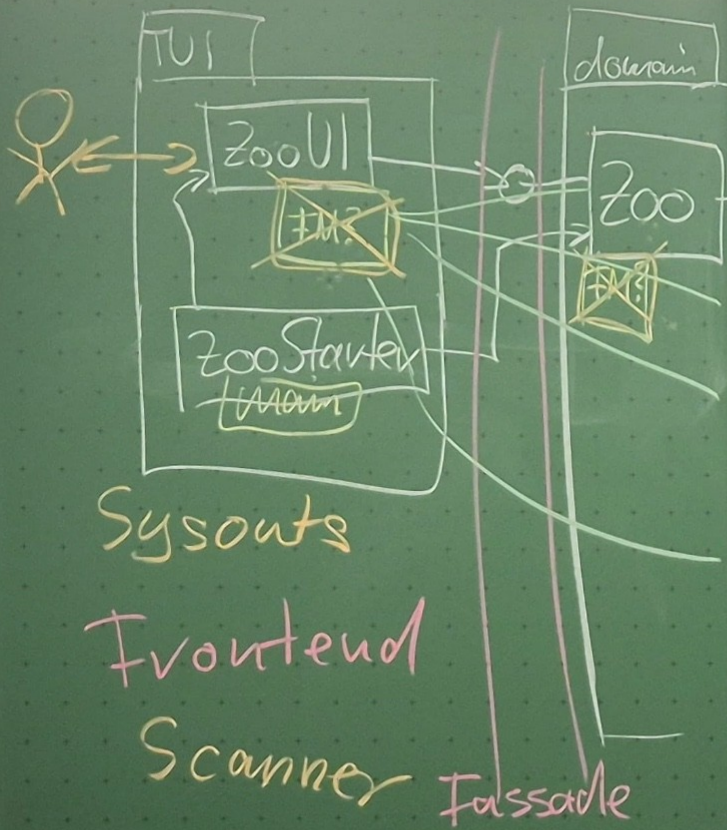 TUI
domain
ZooUI
Zoo
ZooStarter
main
Sysouts
Frontend
Scanner
Fassade